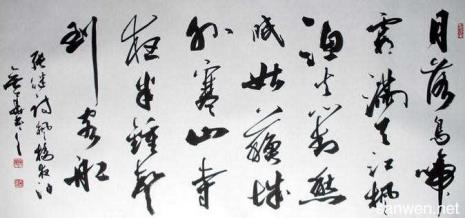 月落烏啼
霜满天江楓
渔火對愁
眠姑蘇城
外寒山寺
夜半鐘聲
到客船
張继诗楓橋夜泊
sanwen.net